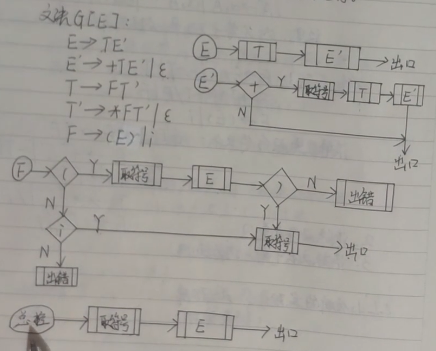 文法G[E]:
E→TE'
E'→+TE'|ε
T→FT'
T'→*FT'|ε
F→(E)|i
E T E' 出口
E' + Y 取符号 T E'
N
出口
F ( Y 取符号 E ) N 出错
N Y
i Y 取符号 出口
N
出错
总控 取符号 E 出口